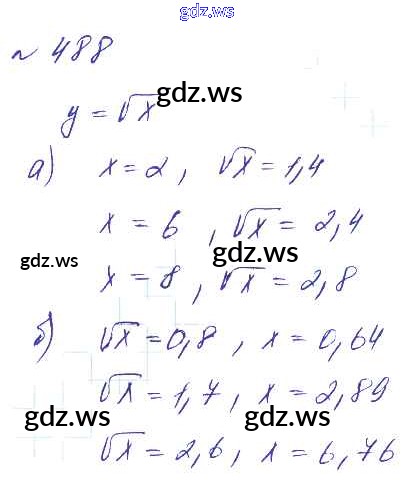 gdz.ws
№ 488
gdz.ws
y = √x
а) x = 2, √x = 1,4
x = 6, √x = 2,4
gdz.ws gdz.ws
x = 8, √x = 2,8
б) √x = 0,8, x = 0,64
√x = 1,7, x = 2,89
gdz.ws gdz.ws
√x = 2,6, x = 6,76